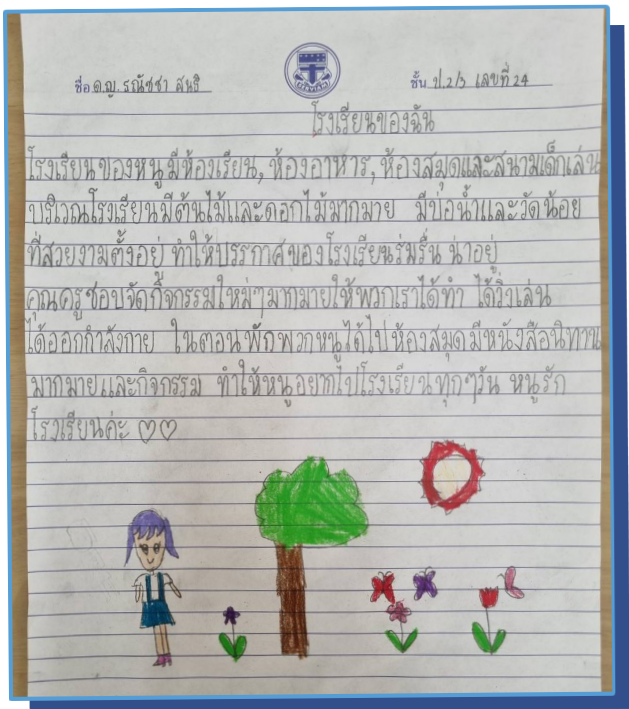 ชื่อ ด.ญ. รณัชชา สนธิ ชั้น ป.2/3 เลขที่ 24
โรงเรียนของฉัน
โรงเรียนของหนูมีห้องเรียน, ห้องอาหาร, ห้องสมุดและสนามเด็กเล่น
บริเวณโรงเรียนมีต้นไม้และดอกไม้มากมาย มีบ่อน้ำและวัดน้อย
ที่สวยงามตั้งอยู่ ทำให้บรรกาศของโรงเรียนร่มรื่น น่าอยู่
คุณครูชอบจัดกิจกรรมใหม่ๆมากมายให้พวกเราได้ทำ ได้วิ่งเล่น
ได้ออกกำลังกาย ในตอนพักพวกหนูได้ไปห้องสมุดมีหนังสือนิทาน
มากมายและกิจกรรม ทำให้หนูอยากไปโรงเรียนทุกๆวัน หนูรัก
โรงเรียนค่ะ ♡♡